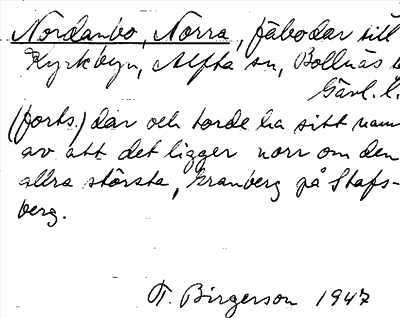 Nordanbo, Norra, fäbodar till
Kyrkbyn, Alfta sn, Bollnäs
Gävl. l.
(forts.) där och torde ha sitt namn
av att det ligger norr om den
allra största, Granberg på Stafs-
berg.
T. Birgerson 1947